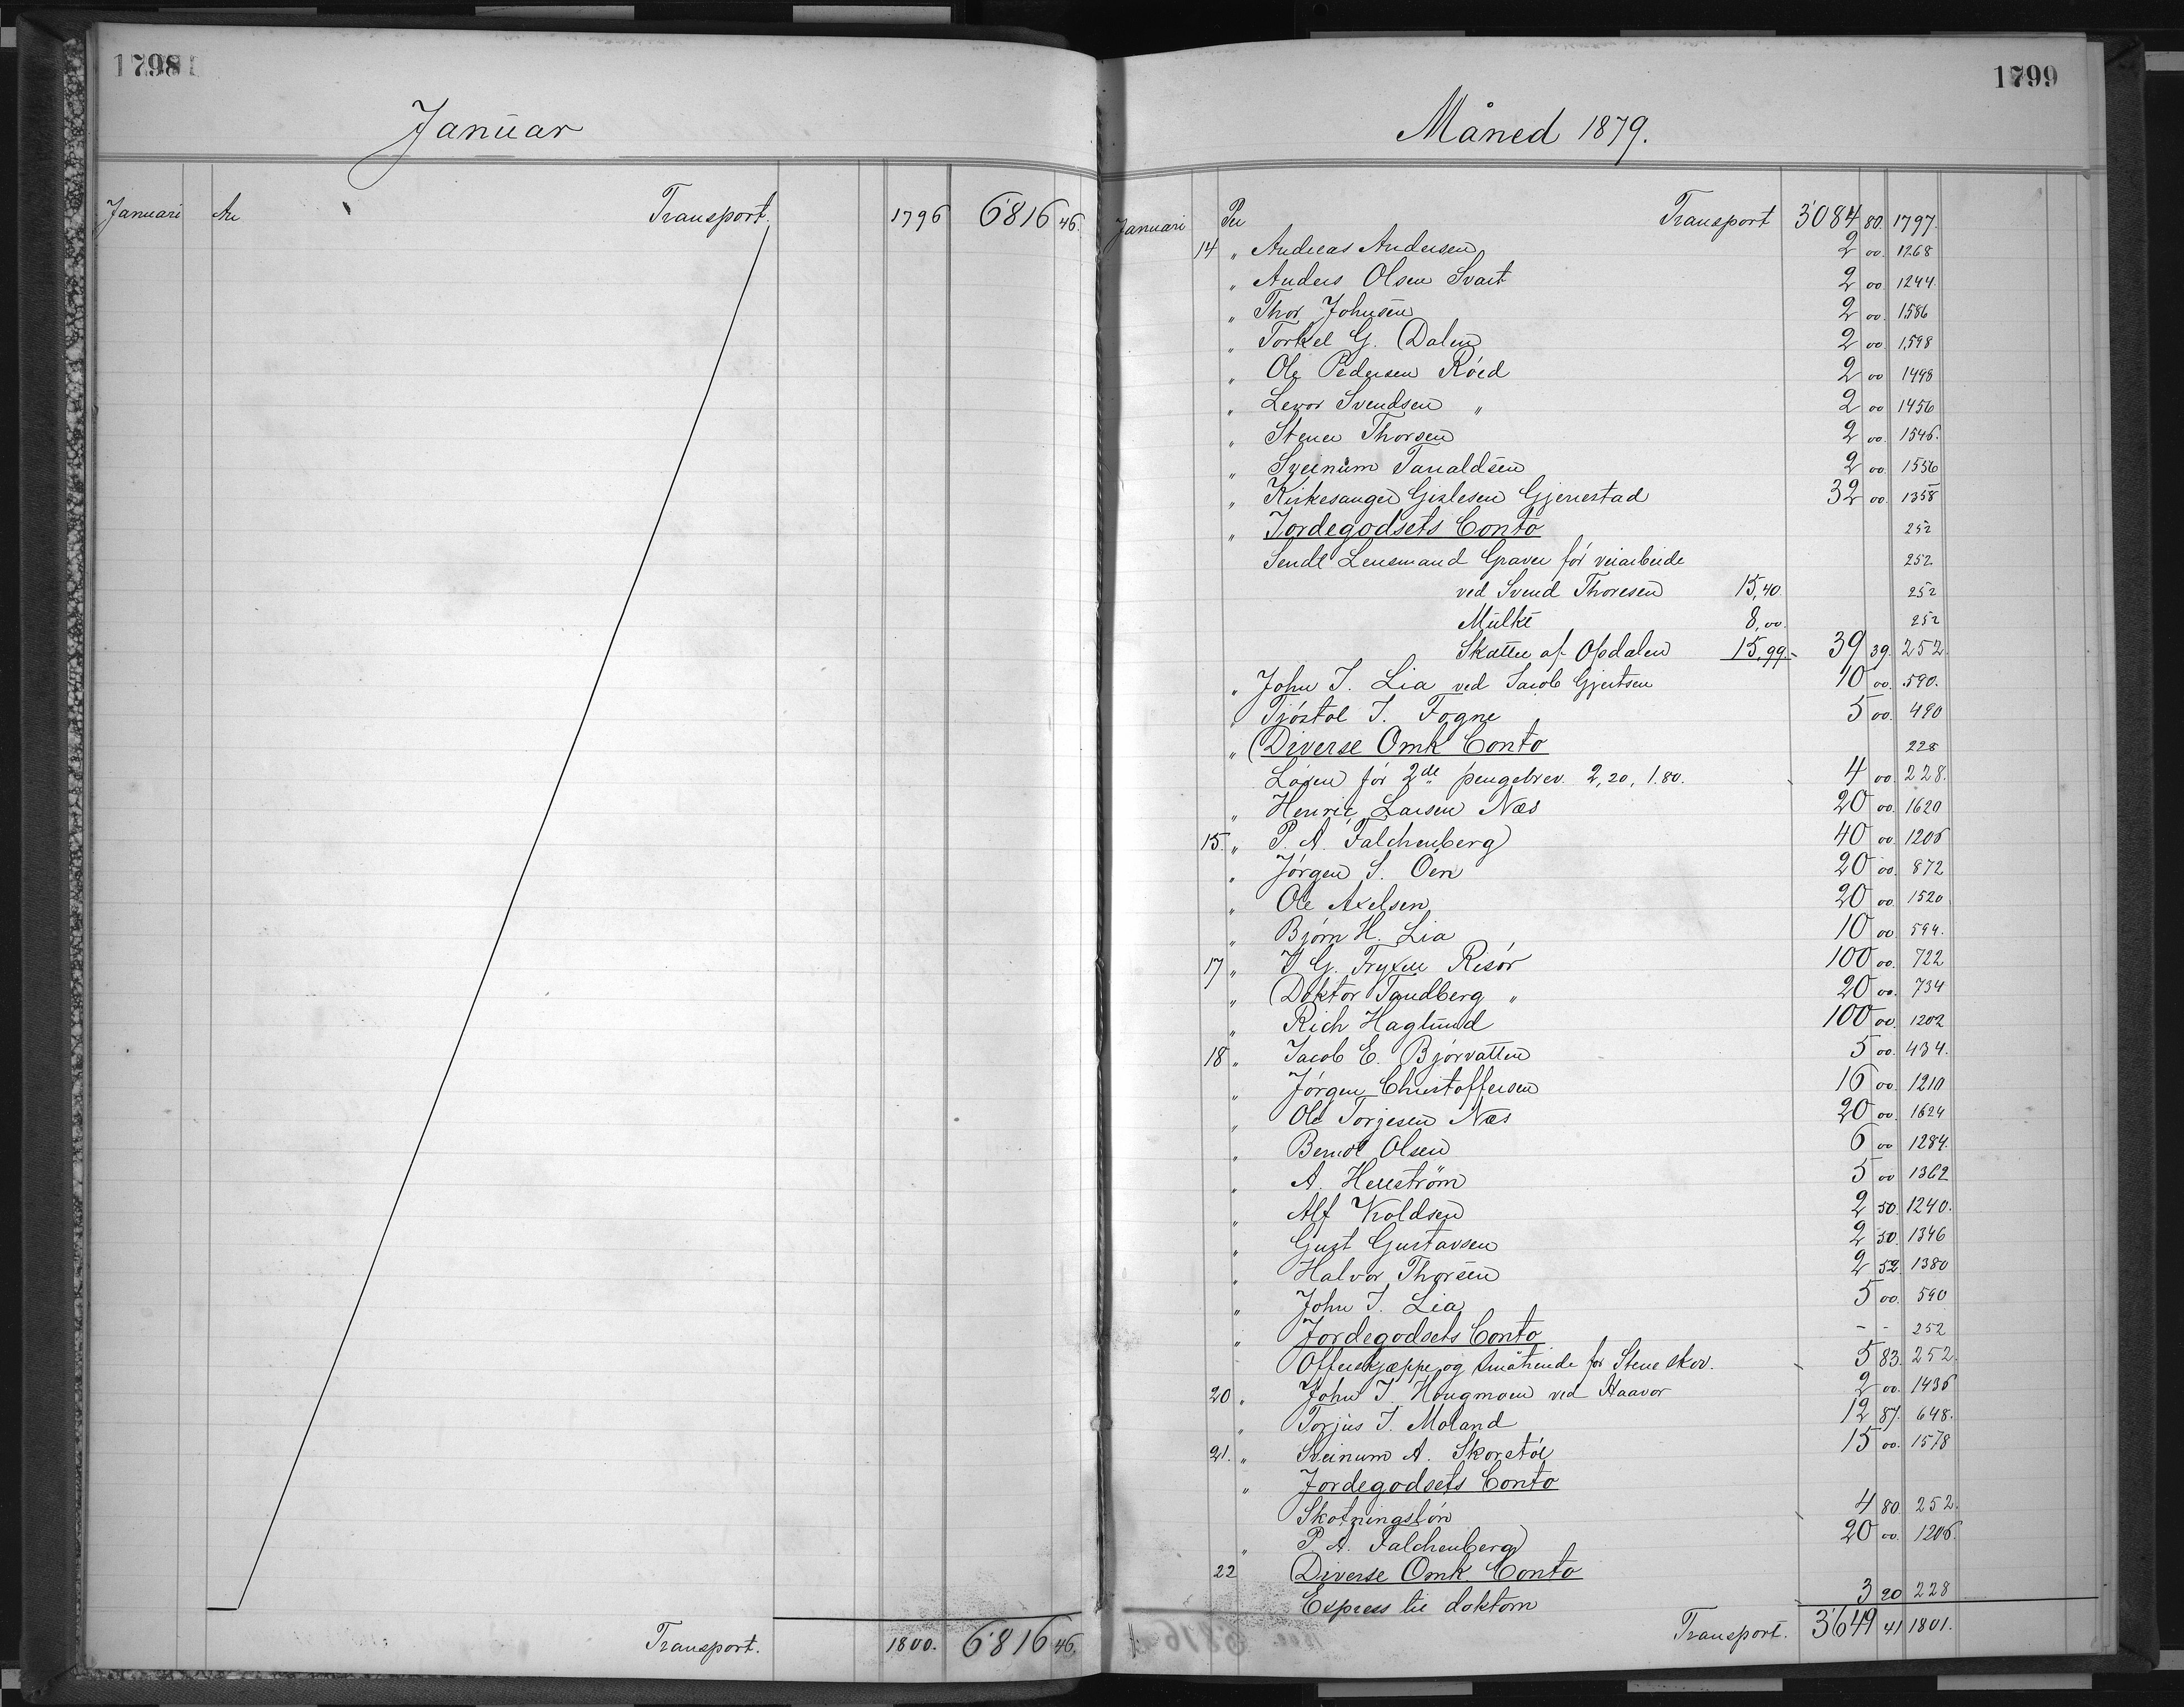 1798
Januar
Januari An Transport. 1796 6816 46.
Transport. 1800. 6816 46.
1799
Måned 1879.
Januari Per Transport 3084 80. 1797.
14 " Andreas Andersen 2 00. 1268
" Anders Olsen Svart 2 00. 1244.
" Thor Johnsen 2 00. 1586
" Torkel G. Dalen 2 00. 1598
" Ole Pedersen Röed 2 00 1498
" Levor Svendsen " 2 00 1456
" Stener Thorsen 2 00. 1546.
" Sveinum Taraldsen 2 00. 1556
" Kirkesanger Gislesen Gjerrestad 32 00. 1358
" Jordegodsets Conto 252
Sendt Lensmand Graver för veiarbeide 252
ved Svend Thoresen 15,40. 252
Mulkt 8,00. 252
Skatten af Opdalen 15,99 39 39. 252
" John T. Lia ved Jacob Gjertsen 10 00. 590.
" Tjöstol T. Fogne 5 00. 490
" Diverse Omk Conto 228
Löien för 2de pengebrev. 2,20, 1.80. 4 00. 228.
" Henric Larsen Næs 20 00. 1620
15. " P. A. Falchenberg 40 00. 1206
" Jörgen S. Öen 20 00. 872
" Ole Axelsen 20 00. 1520
" Björn H. Lia 10 00 594.
17 " I G. Fryxell Risör 100 00. 722
" Doktor Tandberg " 20 00. 734
" Rich Haglund 100 00. 1202
18 " Jacob E. Björvatten 5 00. 434.
" Jörgen Christoffersen 16 00. 1210
" Ole Torjesen Næs 20 00. 1624
" Berndt Olsen 6 00 1284.
" A. Herrström 5 00 1362
" Alf Koldsen 2 50. 1240.
" Gust Gustavsen 2 50. 1346
" Halvor Thorsen 2 52. 1380
" John T. Lia 5 00. 590
" Jordegodsets Conto - - 252
Offerskjæppe og Småtiende for Stene skov. 5 83. 252.
20 " John T. Hougmoen ved Haavor 2 00. 1436
" Torjus T. Moland 12 87. 648.
21. " Sveinum A. Skorstöl 15 00. 1578
" Jordegodsets Conto
Skotningslön 4 80. 252.
" P. A. Falchenberg 20 00. 1206.
22 Diverse Omk. Conto
Express til doktorn 3 20 228
Transport. 3649 41 1801.